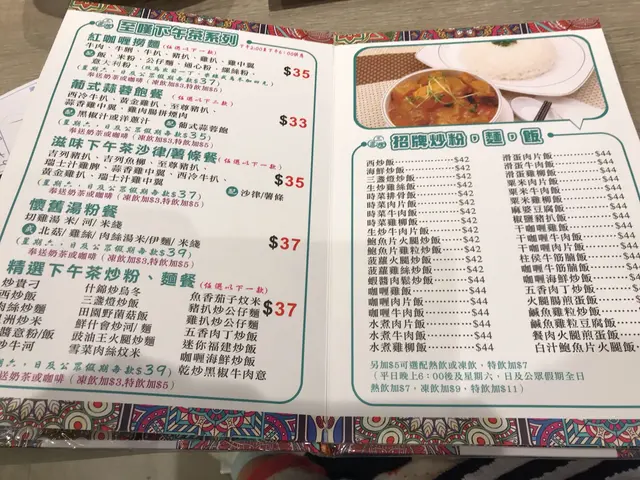 至嘆下午茶系列
紅咖喱撈麵 (任選以下一款)
牛肉、牛腩、牛扒、豬扒、雞扒、雞中翼
配 飯、米粉、公仔麵、通心粉、羅絲粉、
意大利粉
$35
(星期六、日及公眾假期每款$37)
奉送奶茶或咖啡 (凍飲加$3,特飲加$5)
葡式蒜蓉飽餐 (任選以下二款)
西冷牛扒、黃金雞扒、至尊豬扒、
蒜香雞中翼、雞肉腸拼煙肉
配 黑椒汁或洋蔥汁 配 葡式蒜蓉飽
$33
(星期六、日及公眾假期每款$35)
奉送奶茶或咖啡 (凍飲加$3,特飲加$5)
滋味下午茶沙律/薯條餐 (任選以下一款)
吉列豬扒、吉列魚柳、至尊豬扒、
瑞士汁雞脾、蒜香雞中翼、西冷牛扒、
黃金雞扒、瑞士汁雞中翼
配 沙律/薯條
$35
(星期六、日及公眾假期每款$37)
奉送奶茶或咖啡 (凍飲加$3,特飲加$5)
懷舊湯粉餐
切雞湯米/河/米綫
或 北菇/雞絲/肉絲湯米/伊麵/米綫
$37
(星期六、日及公眾假期每款$39)
奉送奶茶或咖啡 (凍飲加$3,特飲加$5)
精選下午茶炒粉、麵餐 (任選以下一款)
$37
炒貴刁 什錦炒烏冬 魚香茄子炆米
西炒飯 三盞燈炒飯 豬扒炒公仔麵
田園野菌菇飯 雞扒炒公仔麵
洲炒米 鮮什會炒河/麵 五香肉丁炒飯
醬意粉/飯 豉油王火腿炒麵 迷你福建炒飯
炒牛河 雪菜肉絲炆米 咖喱海鮮炒飯
乾炒黑椒牛肉意
日及公眾假期每款$39)
奉送奶茶或咖啡 (凍飲加$3,特飲加$5)
招牌炒粉，麵，飯
西炒飯 $42
海鮮炒飯 $42
三盞燈炒飯 $42
生炒雞絲飯 $42
時菜排骨飯 $42
時菜肉片飯 $42
時菜牛肉飯 $42
時菜雞柳飯 $42
生炒牛肉片飯 $42
鮑魚片火腿炒飯 $42
鮑魚片雞粒炒飯 $42
菠蘿火腿炒飯 $42
菠蘿雞絲炒飯 $42
蝦醬肉鬆炒飯 $44
咖喱雞飯 $44
咖喱肉片飯 $44
咖喱牛肉飯 $44
水煮肉片飯 $44
水煮牛肉飯 $44
水煮雞柳飯 $44
滑蛋肉片飯 $44
滑蛋牛肉飯 $44
滑蛋雞柳飯 $44
粟米肉片飯 $44
粟米牛肉飯 $44
粟米雞柳飯 $44
麻婆豆腐飯 $44
椒鹽豬扒飯 $44
干咖喱肉片飯 $44
干咖喱牛肉飯 $44
干咖喱雞柳飯 $44
柱侯牛筋腩飯 $44
咖喱牛筋腩飯 $44
咖喱海鮮飯 $44
五香肉丁炒飯 $44
火腿腸煎蛋飯 $44
鹹魚雞粒炒飯 $44
鹹魚雞粒豆腐飯 $44
餐肉火腿煎蛋飯 $44
白汁鮑魚片火腿飯 $44
另加$5可選配熱飲或凍飲，特飲加$7
(平日晚上6：00後及星期六、日及公眾假期全日
熱飲加$7，凍飲加$9、特飲加$11)